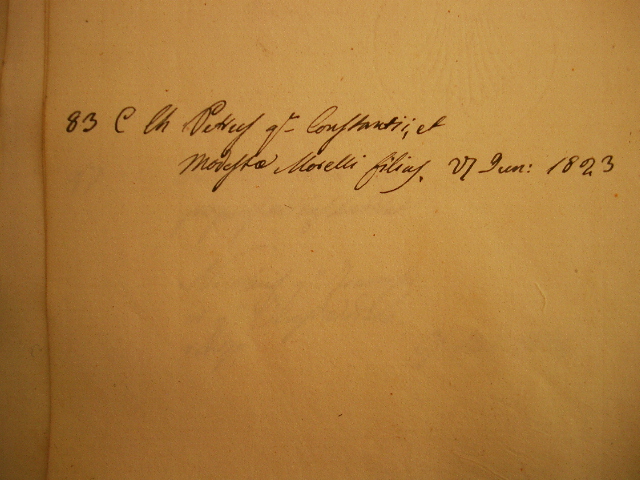 83 C Ch Petrus qm Constantii, et
Modestæ Morelli filius. 27 Jun: 1823